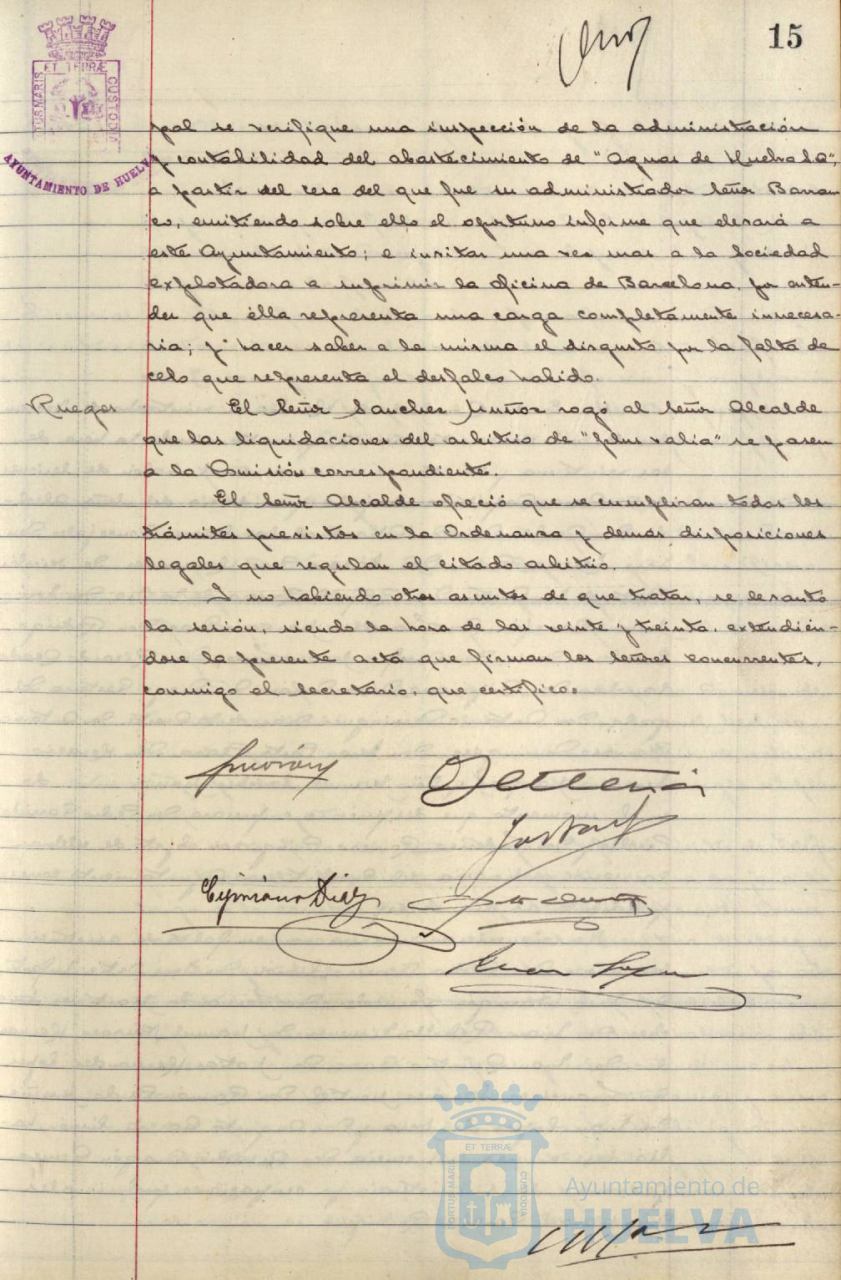 15
ET TERRÆ
PORTUS MARIS
CUSTODIA
AYUNTAMIENTO DE HUELVA
pal se verifique una inspección de la administración
y contabilidad del abastecimiento de "Aguas de Huelva S.A.",
a partir del cese del que fue su administrador Señor Barran-
co, emitiendo sobre ello el oportuno informe que elevará a
este Ayuntamiento; e invitar una vez mas a la Sociedad
explotadora a suprimir la oficina de Barcelona, por enten-
der que élla representa una carga completamente innecesa-
ria; y hacer saber a la misma el disgusto por la falta de
celo que representa el desfalco habido.
Ruegos
El Señor Sanchez Muñoz rogó al Señor Alcalde
que las liquidaciones del arbitrio de "plus valia" se pasen
a la Comisión correspondiente.
El Señor Alcalde ofreció que se cumpliran todos los
trámites previstos en la Ordenanza y demás disposiciones
legales que regulan el citado arbitrio.
Y no habiendo otros asuntos de que tratar, se levantó
la sesión, siendo la hora de las veinte y treinta, extendién-
dose la presente acta que firman los señores concurrentes,
conmigo el secretario, que certifico.
Cipriano Diaz
ET TERRÆ
PORTUS MARIS
CUSTODIA
Ayuntamiento de
HUELVA